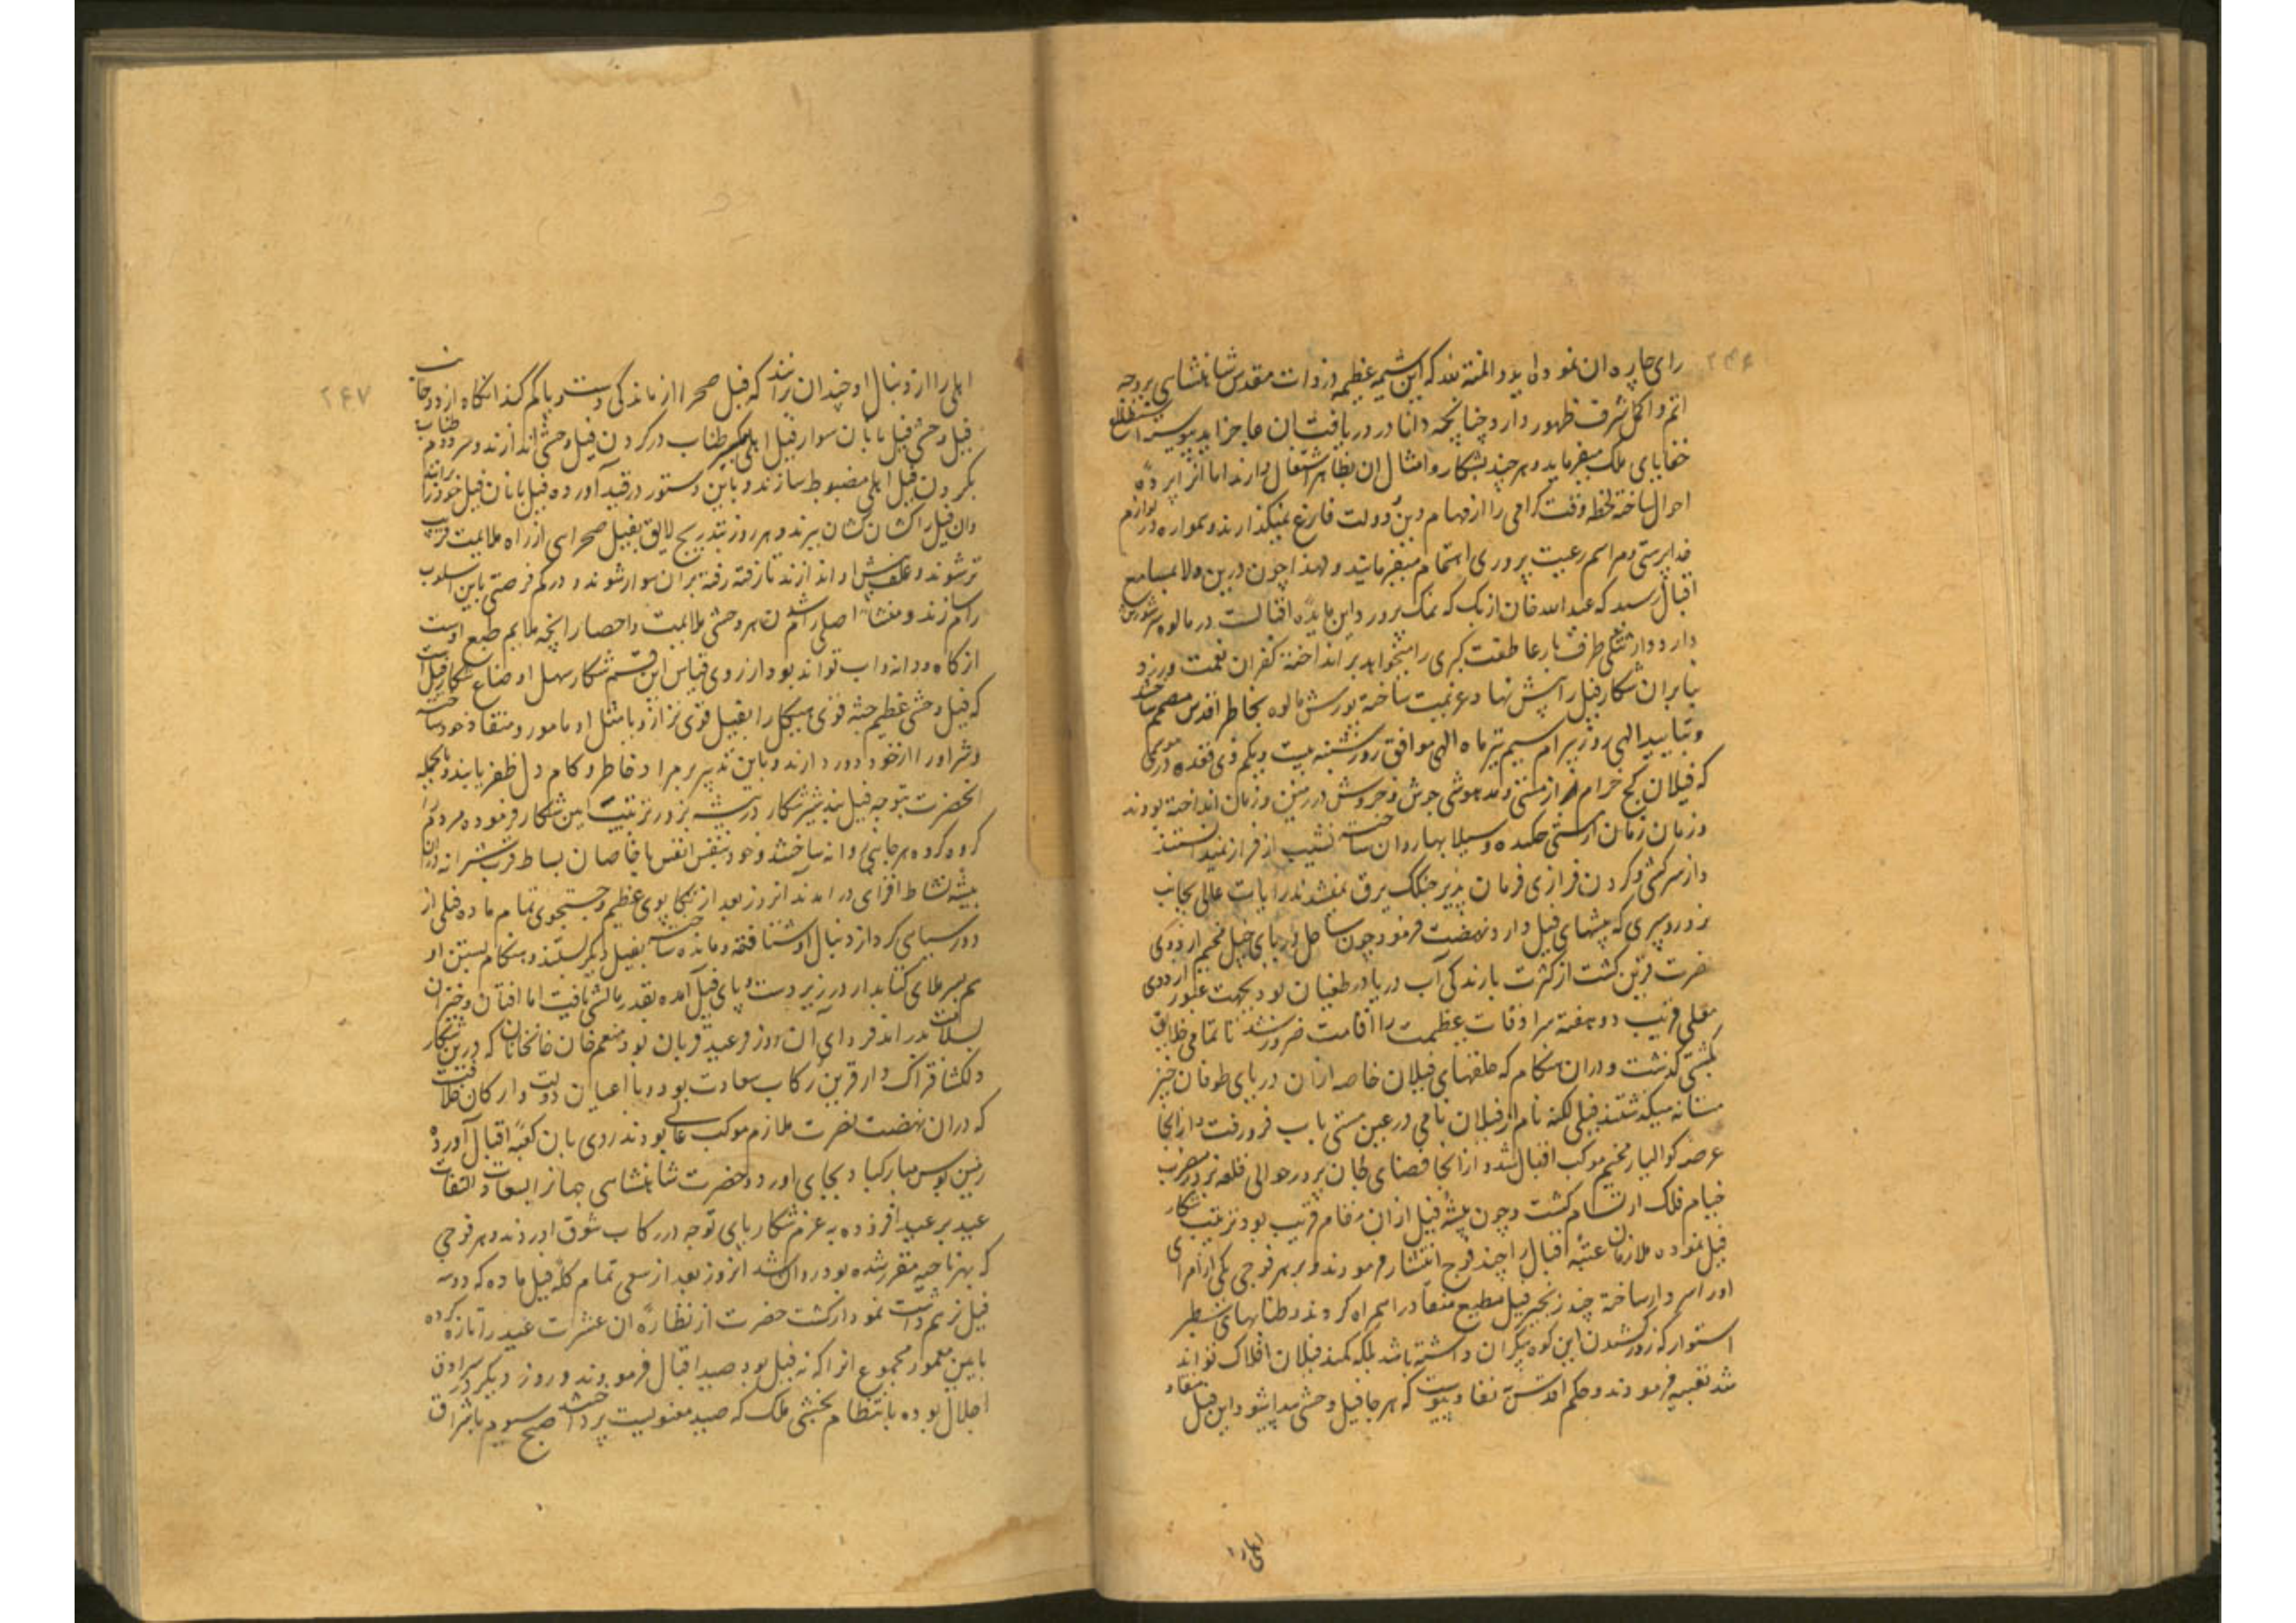 ۲۴۶
رای چاره ان نمود و المنة لله که این شیمه عظیمه در ذات مقدس شاهنشاهی بر وجه
اتم و اکمل شرف ظهور دارد چنانچه دانا در دریافت ان عاجز اید پیوسته استطلاع
خفایای ملک میفرماید و هر چند بشکار و امثال ان بظاهر اشتغال دارند اما انرا پرده
احوال ساخته لحظه وقت کرامی را از مهام دین و دولت فارغ نمیکذارند و همواره در لوازم
خداپرستی و مراسم رعیت پروری اهتمام میفرمایند و لهذا چون درین ولا بمسامع
اقبال رسید که عبدالله خان ازبک که نمک پرورد این مایده افتالست در مالوه سر شورش
دارد و از تنکی ظرف بار عاطفت کبری را میخواهد بر انداخته کفران نعمت ورزد
بنابران شکار فیل را پیش نهاد عزیمت ساخته یورش مالوه بخاطر اقدس مصمم ساختند
و بتایید الهی روز بیرام سیم تیر ماه الهی موافق روز شنبه بیست و یکم ذی قعده در موسمی
که فیلان کج خرام از مستی و مدهوشی جوش و خروش در زمین و زمان انداخته بودند
و زمان زمان از مستی چکیده و سیلابها روان ساخته نشیب از فراز نمیدانستند
و از سرکشی و کردن فرازی فرمان پذیر جنکک برق نمیشدند رایات عالی بجانب
نرور و سپری که بیشهای فیل دارد نهضت فرمود چون ساحل دریای چنبل مخیم اردوی
نصرت قرین کشت از کثرت بارندکی آب دریا در طغیان بود بجهت عبور اردوی
معلی قریب دو هفته سرادقات عظمت را اقامت ضرور شد تا تمامی خلایق
بکشتی کذشت و دران هنکام که حلقهای فیلان خاصه ازان دریای طوفان خیز
مستانه میکذشتند فیلی لکنه نام از فیلان نامی در عین مستی باب فرو رفت و از انجا
عرصه کوالیار مخیم موکب اقبال شد و از انجا فضای جان پرور حوالی قلعه نرور مضرب
خیام فلک ارتسام کشت و چون بیشه فیل از ان مقام قریب بود ترتیب شکار
فیل نموده ملازمان عتبه اقبال را چند فوج انتشار فرمودند و بر هر فوجی یکی از امرای
را سردار ساخته چند زنجیر فیل مطیع منقاد را همراه کردند و طنابهای سطبر
استوار که زور کشیدن این کوه پیکران داشته باشد بلکه کمند فیلان افلاک تواند
شد تعبیه فرمودند و حکم اقدس نفاذ پیوست که هر جا فیل وحشی پیدا شود این فیل منقاد
اهلی را
۲۴۷
اهلی را از دنبال او چندان برانند که فیل صحرا از ماندکی دست و پا کم کند انکاه از دو جانب
فیل وحشی فیل بانان سوار فیل اهلی طناب در کردن فیل وحشی اندازند و سر دوم طناب
بکردن فیل اهلی مضبوط سازند و باین دستور در قید آورده فیل بانان فیل خود را رانند
وان فیل را کشان کشان ببرند و هر روز بتدریج لایق بفیل صحرای از راه ملایمت قریب
تر شوند و علف پیش او اندازند تا رفته رفته بران سوار شوند و در کم فرصتی باین اسلوب
رام سازند و منشاء اصلی رام شدن هر وحشی ملایمت و احضار انچه ملایم طبع اوست
از کاه و دانه و اب تواند بود و از روی قیاس این قسم شکار سهل اوضاع شکار فیل است
که فیل وحشی عظیم جثه قوی هیکل را بفیل قوی تر از و یا مثل او مامور و منقاد خود ساخته
و شر او را از خود دور دارند و باین تدبیر بر مراد خاطر و کام دل ظفر یابند و بالجمله
انحضرت بتوجه فیل بند شیر شکار در بیشه نرور ترتیب این شکار فرموده مردم را
کروه کروه هر جانبی روانه ساختند و خود بنفس انفس با خاصان بساط قرب شیرانه دران
بیشه نشاط افزای در امدند انروز بعد از تکاپوی عظیم و جستجوی تمام ماده فیلی از
دور سیاهی کرد از دنبال او شتافته و مانده ساخته بفیل دیکر بستند و هنکام بستن او
هم سر ملای کتابدار در زیر دست و پای فیل آمده بقدر مالشی یافت اما افتان و خیزان
بسلامت بدر امد فردای ان روز عید قربان بود منعم خان خانخانان که درین شکار
دلکشا فتراک وار قرین رکاب سعادت بود و با اعیان دولت و ارکان خلافت
که دران نهضت نصرت ملازم موکب عالی بودند روی بان کعبه اقبال آورده
زمین بوس مبارکباد بجای اورد و حضرت شاهنشاهی
عید بر عید افزوده به عزم شکار پای توجه در رکاب شوق اوردند و هر فوجی
که بهر ناحیه مقرر شده بود روان شد انروز بعد از سعی تمام کله فیل ماده که دو سه
فیل نر هم داشت نمودار کشت حضرت از نظاره ان عشرت عید را تازه کرده
بایین معمور مجموع انرا که نه فیل بود صید اقبال فرمودند و روز دیکر در سرادق
اجلال بوده بانتظام بخشی ملک که صید معنویست پرداختند صبح سیوم باشراق